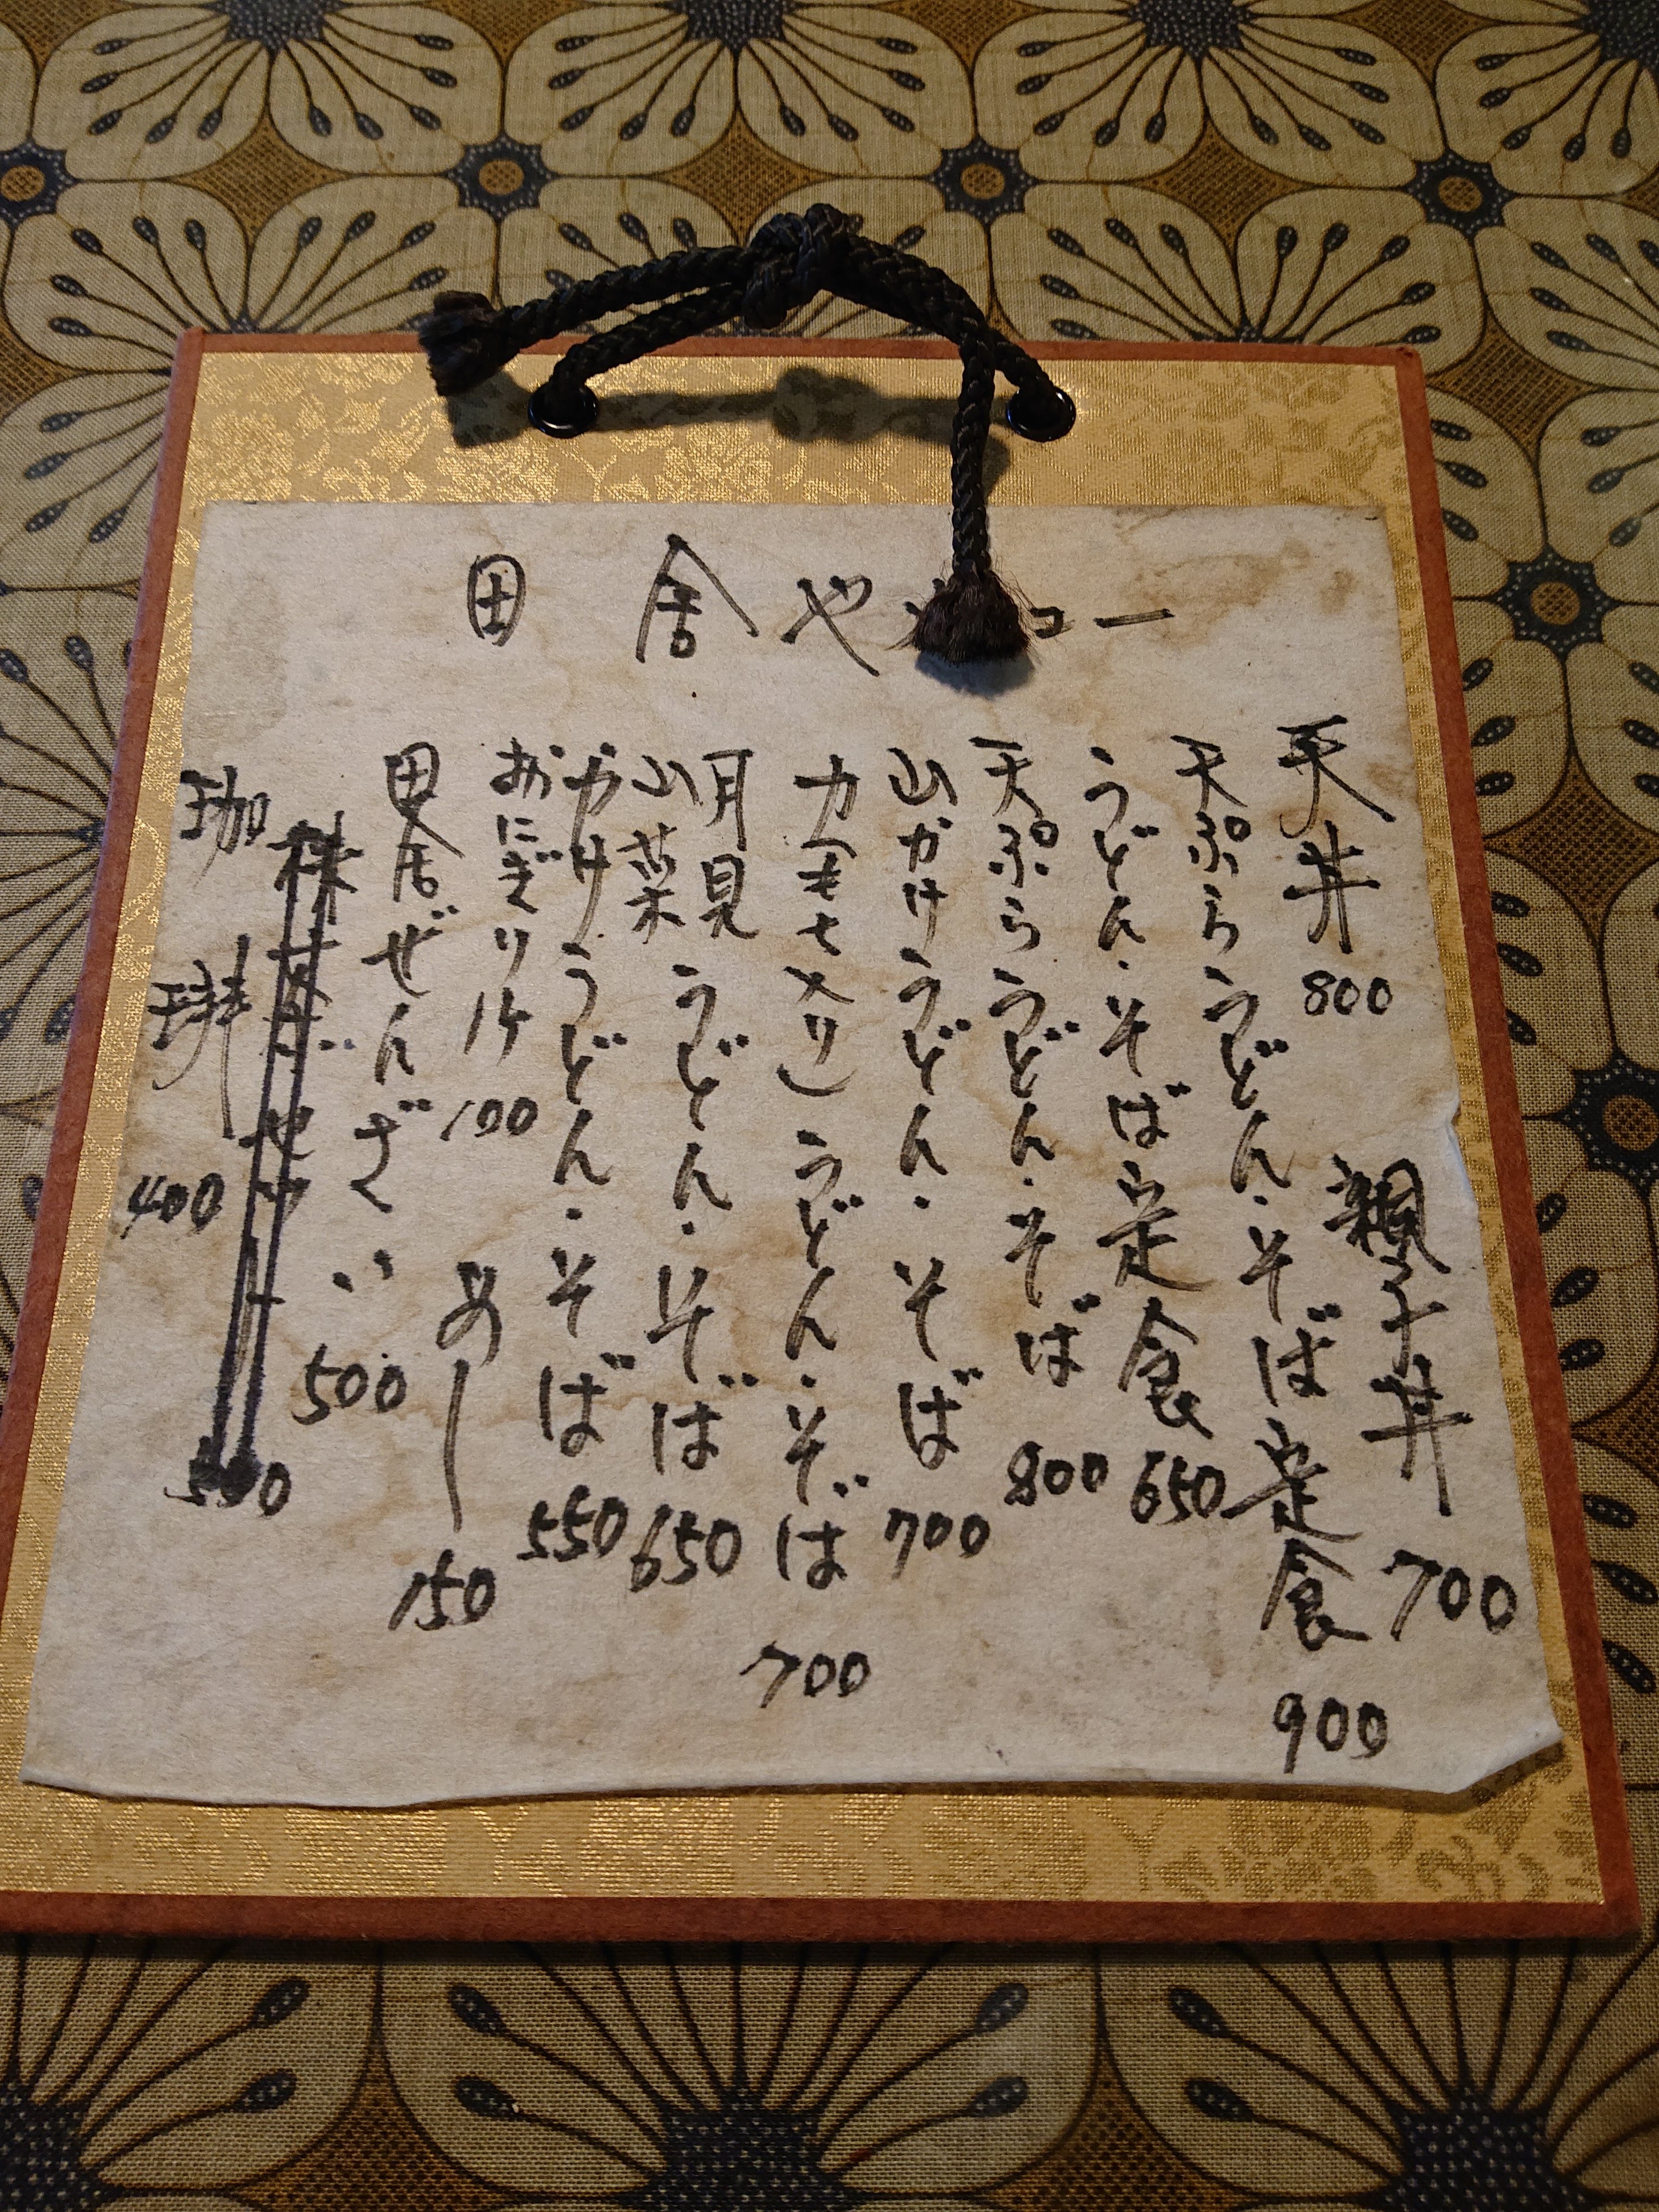 田舎やメニュー
天丼 800
親子丼 700
天ぷらうどん・そば定食 900
うどん・そば定食 650
天ぷらうどん・そば 800
山かけうどん・そば 700
力(モチ入り)うどん・そば 700
月見
山菜 うどん・そば 650
かけうどん・そば 550
おにぎり1ケ 100
めし 150
田舎ぜんざい 500
珈琲 400